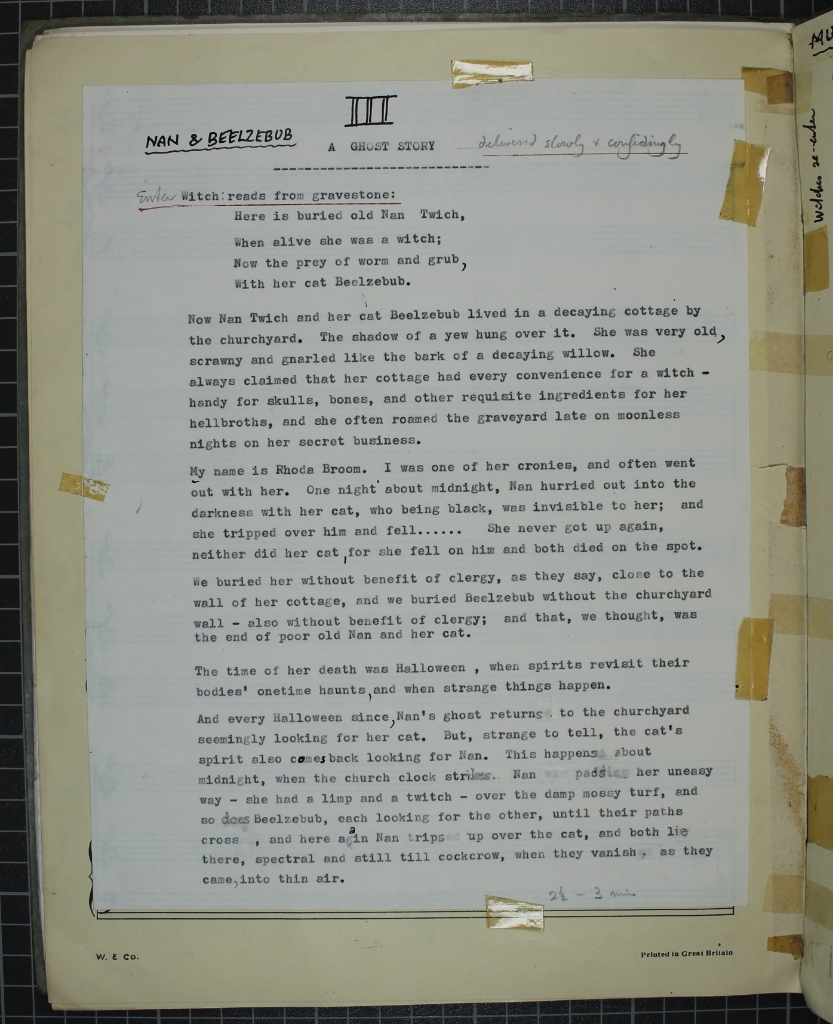 III
NAN & BEELZEBUB
A GHOST STORY
delivered slowly & confidingly
Enter Witch: reads from gravestone:
Here is buried old Nan Twich,
When alive she was a witch;
Now the prey of worm and grub,
With her cat Beelzebub.
Now Nan Twich and her cat Beelzebub lived in a decaying cottage by
the churchyard. The shadow of a yew hung over it. She was very old,
scrawny and gnarled like the bark of a decaying willow. She
always claimed that her cottage had every convenience for a witch -
handy for skulls, bones, and other requisite ingredients for her
hellbroths, and she often roamed the graveyard late on moonless
nights on her secret business.
My name is Rhoda Broom. I was one of her cronies, and often went
out with her. One night about midnight, Nan hurried out into the
darkness with her cat, who being black, was invisible to her; and
she tripped over him and fell...... She never got up again,
neither did her cat, for she fell on him and both died on the spot.
We buried her without benefit of clergy, as they say, close to the
wall of her cottage, and we buried Beelzebub without the churchyard
wall - also without benefit of clergy; and that, we thought, was
the end of poor old Nan and her cat.
The time of her death was Halloween , when spirits revisit their
bodies' onetime haunts, and when strange things happen.
And every Halloween since, Nan's ghost returns to the churchyard
seemingly looking for her cat. But, strange to tell, the cat's
spirit also comes back looking for Nan. This happens about
midnight, when the church clock strikes. Nan pads her uneasy
way - she had a limp and a twitch - over the damp mossy turf, and
so does Beelzebub, each looking for the other, until their paths
cross , and here again Nan trips up over the cat, and both lie
there, spectral and still till cockcrow, when they vanish, as they
came, into thin air.
2½ - 3 min
W. & CO.
Printed in Great Britain
Witches re-enter